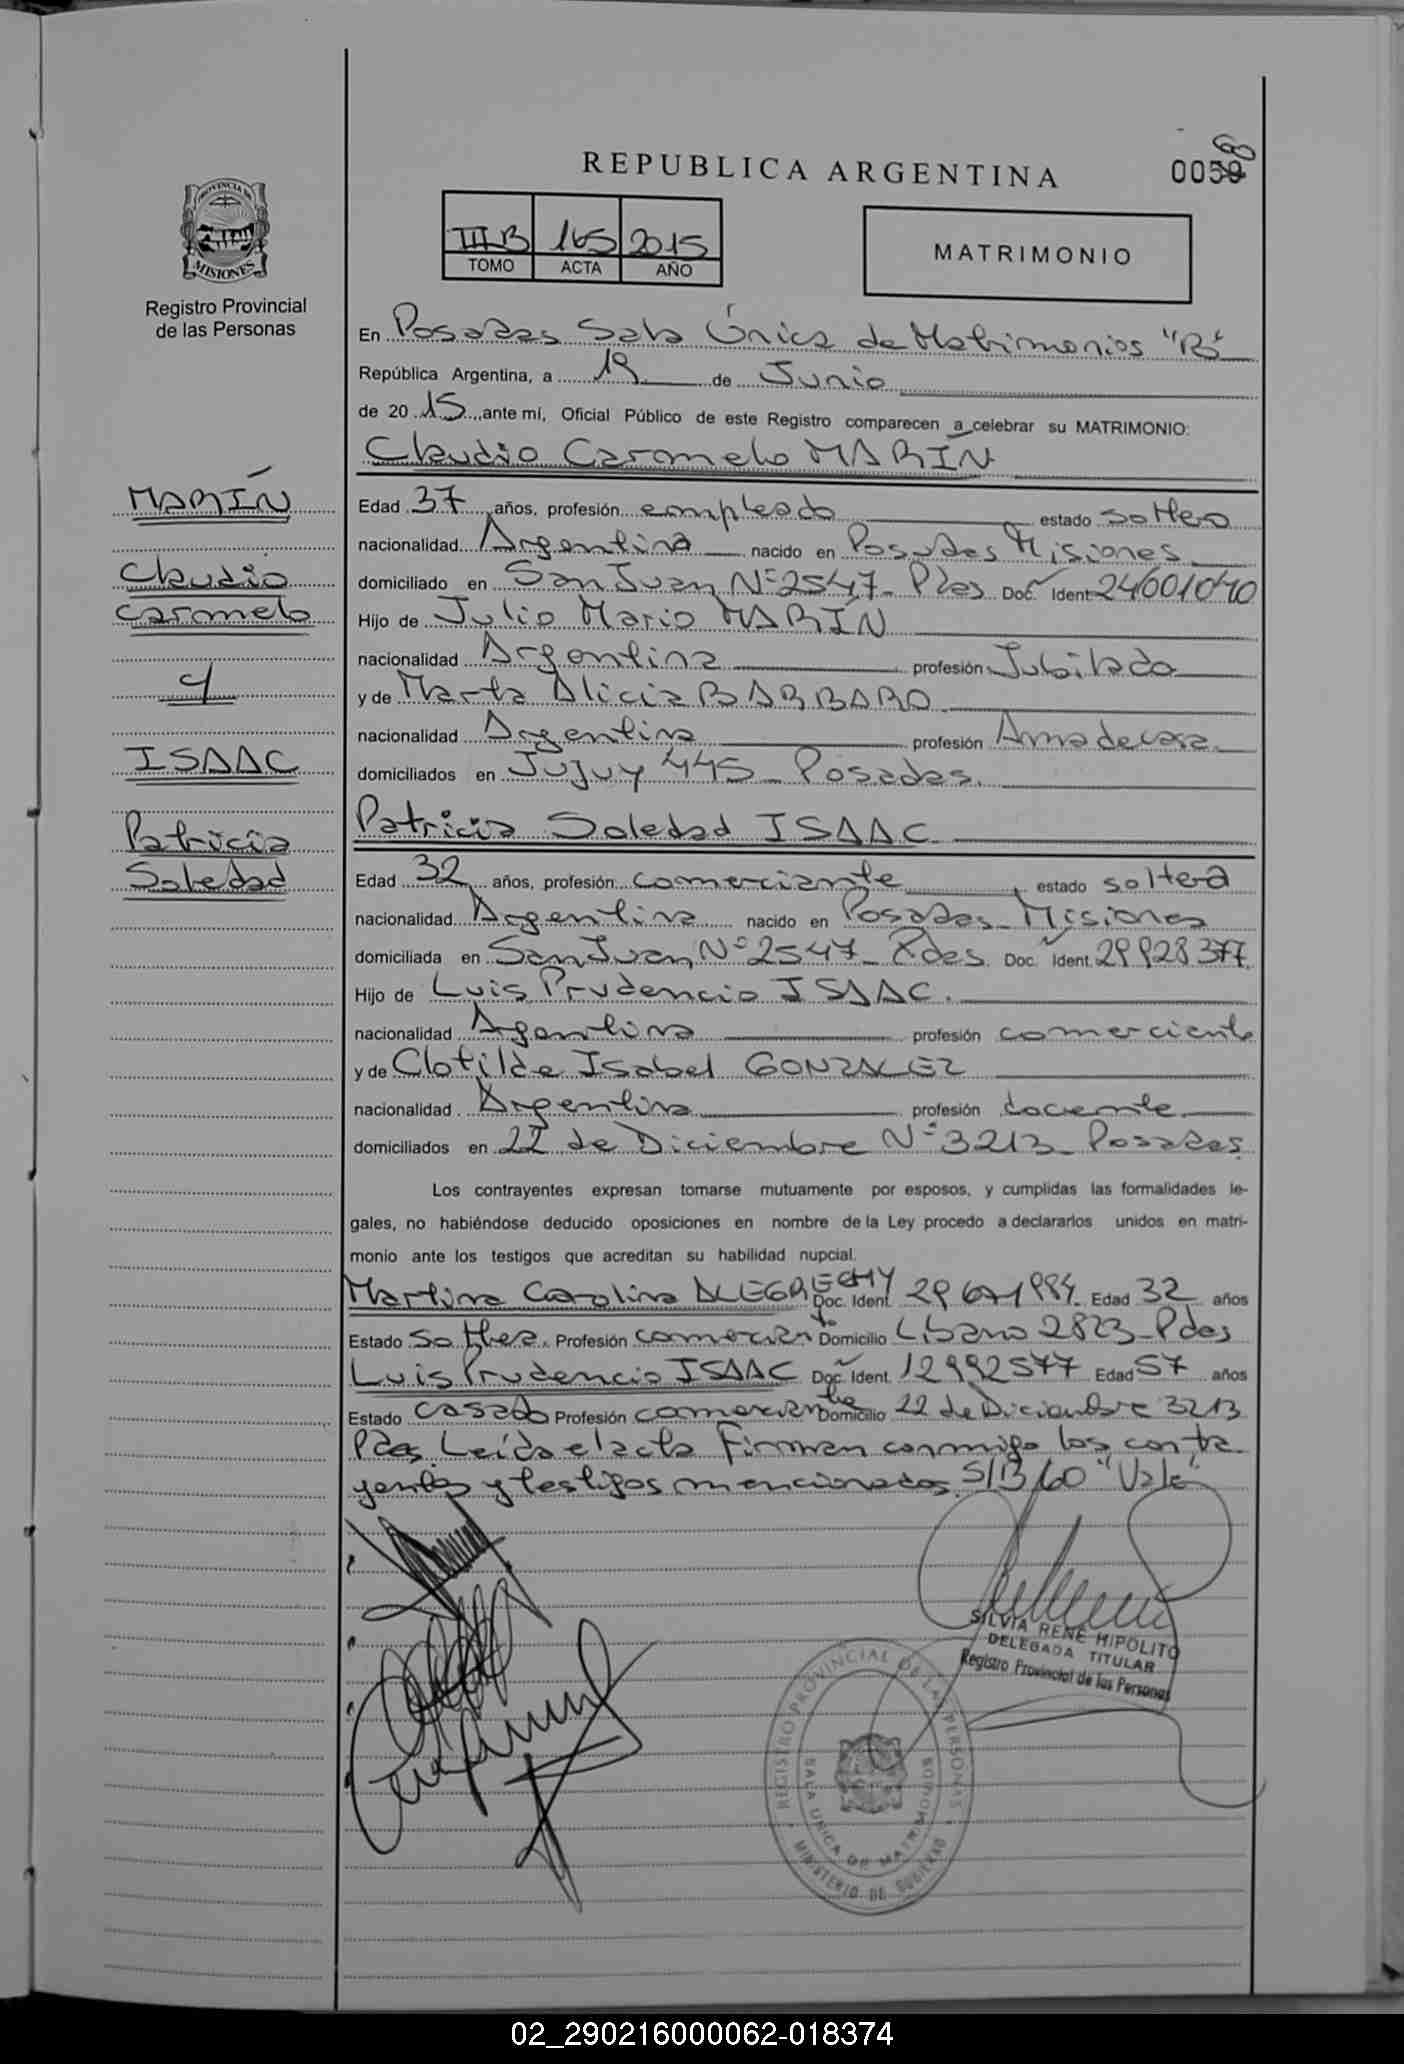 REPUBLICA ARGENTINA
0059
60
PROVINCIA DE
MISIONES
Registro Provincial
de las Personas
III B 165 2015
TOMO ACTA AÑO
MATRIMONIO
En Posadas Sala Única de Matrimonios "B"
República Argentina, a 19 de Junio
de 2015, ante mí, Oficial Público de este Registro comparecen a celebrar su MATRIMONIO:
Claudio Carmelo MARÍN
MARÍN
Claudio
Carmelo
y
ISAAC
Patricia
Soledad
Edad 37 años, profesión empleado estado soltero
nacionalidad Argentina nacido en Posadas Misiones
domiciliado en San Juan Nº 2547 - Pdas Doc. Ident.
Hijo de Julio Mario MARÍN
nacionalidad Argentina profesión Jubilado
y de Marta Alicia BARBARO
nacionalidad Argentina profesión Ama de casa
domiciliados en Jujuy 445 - Posadas.
Patricia Soledad ISAAC
Edad 32 años, profesión comerciante, estado soltera
nacionalidad Argentina nacido en Posadas - Misiones
domiciliada en San Juan Nº 2547 - Pdas. Doc. Ident. 29928377.
Hijo de Luis Prudencio ISAAC.
nacionalidad Agentina profesión comerciante
y de Clotilde Isabel GONZALEZ
nacionalidad Argentina profesión docente
domiciliados en 22 de Diciembre Nº 3213 - Posadas.
Los contrayentes expresan tomarse mutuamente por esposos, y cumplidas las formalidades le-
gales, no habiéndose deducido oposiciones en nombre de la Ley procedo a declararlos unidos en matri-
monio ante los testigos que acreditan su habilidad nupcial.
Martina Carolina ALEGRECHY Doc. Ident. Edad 32 años
Estado soltera. Profesión comerciante Domicilio Libano 2823 - Pdas
Luis Prudencio ISAAC Doc. Ident. 12992577 Edad 57 años
Estado casado Profesión comerciante Domicilio 22 de Diciembre 3213
Pdas. Leída el acta firman conmigo los contra
yentes y testigos mencionados. S/B 60 "Vale"
SILVIA RENE HIPOLITO
DELEGADA TITULAR
Registro Provincial de las Personas
REGISTRO PROVINCIAL DE LAS PERSONAS
SALA UNICA DE MATRIMONIOS
MINISTERIO DE GOBIERNO
02_290216000062-018374